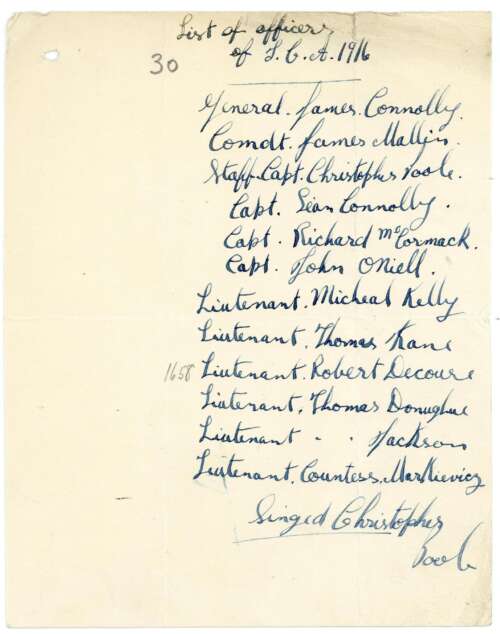 List of officers
of I. C. A. 1916
30
General. James. Connolly.
Comdt. James Mallin.
Staff-Capt. Christopher Poole.
Capt. Sean Connolly.
Capt. Richard McCormack.
Capt. John ONiell.
Liutenant. Micheal Kelly
Liutenant. Thomas Kane
1658 Liutenant. Robert Decoure
Liutenant. Thomas Donughue
Liutenant . . Jackson
Liutenant. Countess. Markievicz
Singed Christopher
Poole